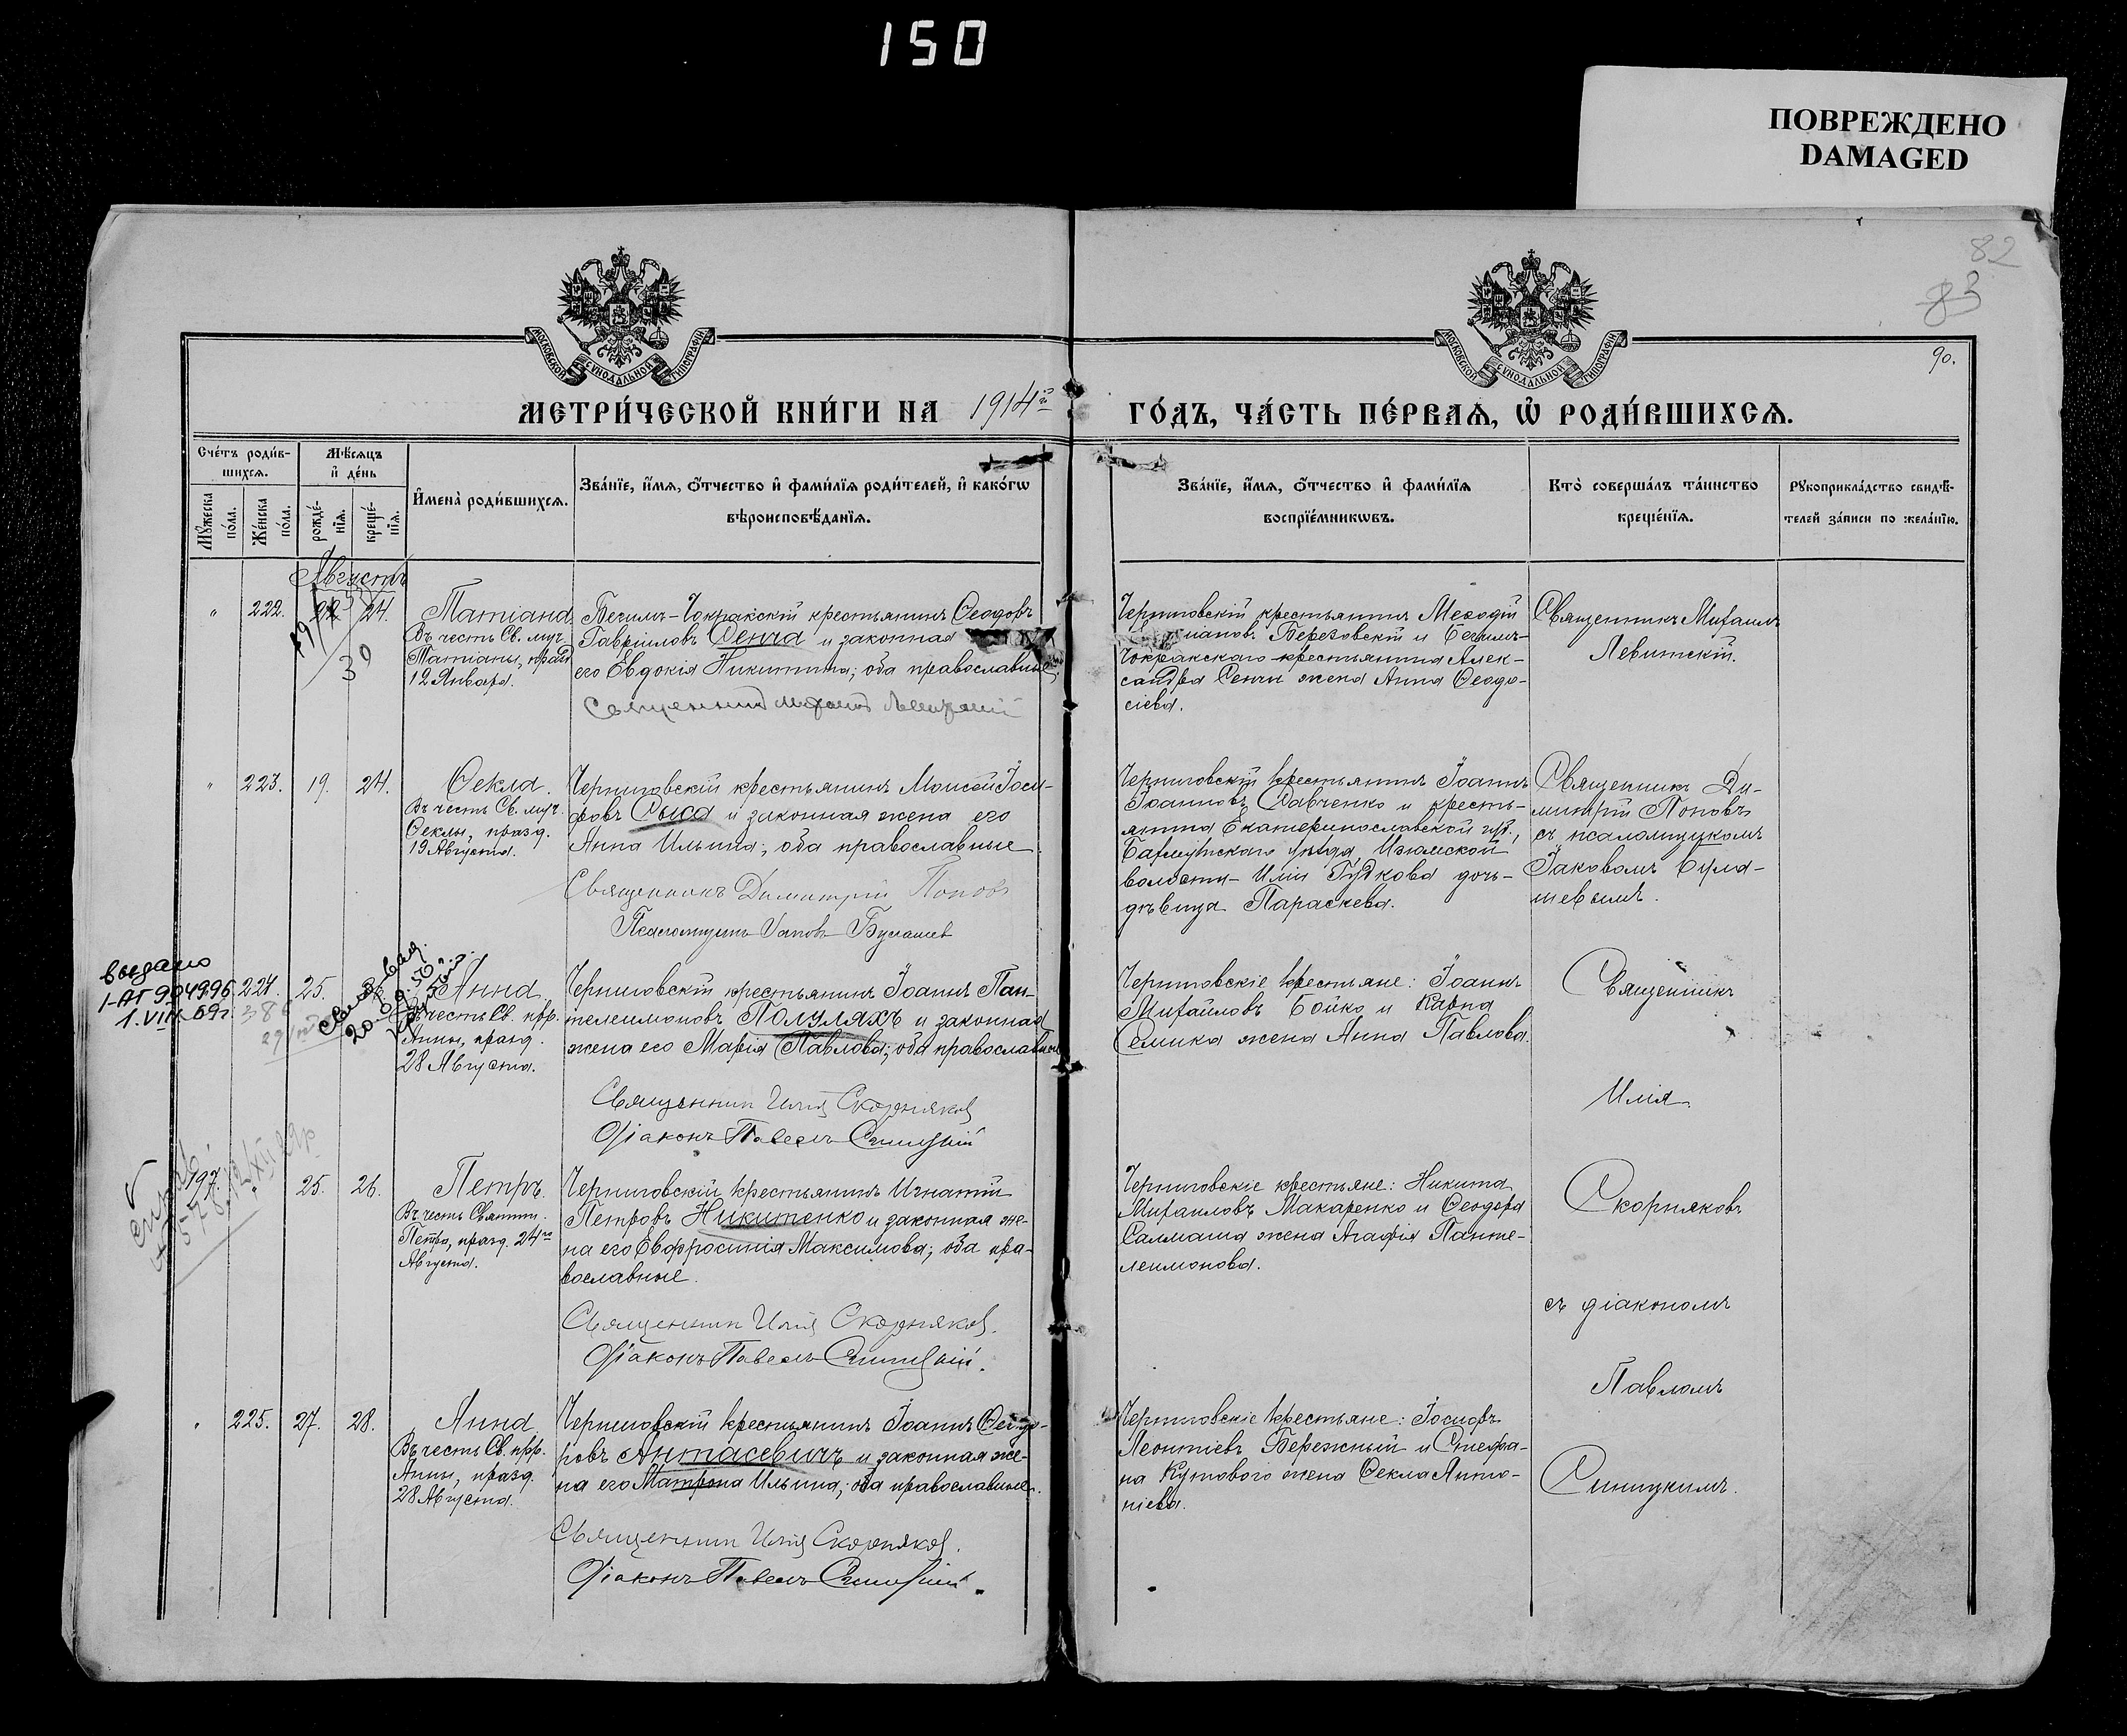 150
ПОВРЕЖДЕНО
DAMAGED
82
83
90.
МОСКОВСКОЙ СѴНОДАЛЬНОЙ ТИПОГРАФІИ
МОСКОВСКОЙ СѴНОДАЛЬНОЙ ТИПОГРАФІИ
МЕТРИ́ЧЕСКОЙ КНИ́ГИ НА 1914й ГО́ДЪ, ЧА́СТЬ ПЕ́РВАѦ, Ѡ҆ РОДИ́ВШИХСѦ.
Сче́тъ роди́в-
шихсѧ.
Мѣ́сѧцъ
и҆ де́нь
Мꙋ́жеска
по́ла.
Же́нска
по́ла.
рожде́-
нїѧ.
креще́-
нїѧ.
И҆мена̀ роди́вшихсѧ.
Зва́нїе, и҆́мѧ, ѻ҆́тчество и҆ фами́лїѧ роди́телей, и҆ како́гѡ
вѣроисповѣ́данїѧ.
Зва́нїе, и҆́мѧ, ѻ҆́тчество и҆ фами́лїѧ
воспрїе́мникѡвъ.
Кто̀ соверша́лъ та́инство
креще́нїѧ.
Рꙋкоприкла́дство свидѣ́-
телей за́писи по жела́нїю.
Августъ
" 222. 22 24.
39
Татіана
Въ честь Св. муч.
Татіаны, празд.
12 Января.
Бегимъ-Чокракскій крестьянинъ Ѳеодоръ
Гавріиловъ Сенча и законная
его Евдокія Никитина; оба православные.
Священникъ Михаилъ Левитскій
Черниговскій крестьянинъ Меѳодій
Березовскій и Бегимъ-
Чокракскаго крестьянина Алек-
сандра Сенчи жена Анна Ѳеодо-
сіева.
Священникъ Михаилъ
Левитскій.
" 223. 19. 24.
Ѳекла.
Въ честь Св. муч.
Ѳеклы, празд.
19 Августа.
Черниговскій крестьянинъ Моисей Іоси-
фовъ Сыса и законная жена его
Анна Ильина; оба православные.
Священникъ Димитрій Поповъ
Псаломщикъ Іаковъ Булашев
Черниговскій крестьянинъ Іоаннъ
Іоанновъ Савченко и кресть-
янина Екатеринославской губ.,
Бахмутскаго уѣзда, Изюмской
волости- Иліи Гудкова дочь-
дѣвица Параскева.
Священникъ Ди-
митрій Поповъ
съ псаломщикомъ
Іаковомъ Була-
шевымъ.
выдано
I-АГ 904996
1.VIII-69г.
224. 25.
20.09.50г.
Анна
Въ честь Св. прр.
Анны, празд.
28 Августа.
Черниговскій крестьянинъ Іоаннъ Пан-
телеимоновъ Полуляхъ и законная
жена его Марія Павлова; оба православные
Священник Илія Скорняков
Діаконъ Павелъ Синицкій
Черниговскіе крестьяне: Іоаннъ
Михайловъ Бойко и Карпа
Семика жена Анна Павлова.
Священникъ
Илія
197. " 25. 26.
Петръ.
Въ честь Святит.
Петра, празд. 24го
Августа.
Черниговскій крестьянинъ Игнатій
Петровъ Никитенко и законная же-
на его Евфросинія Максимова; оба пра-
вославные.
Священник Илія Скорняков.
Діаконъ Павелъ Синицкій.
Черниговскіе крестьяне: Никита
Михаиловъ Макаренко и Ѳеодора
Салмаша жена Агафія Панте-
леимонова.
Скорняковъ
съ діакономъ
Павломъ
" 225. 27. 28.
Анна
Въ честь Св. прр.
Анны, празд.
28 Августа.
Черниговскій крестьянинъ Іоаннъ Ѳеодо-
ровъ Антасевичъ и законная же-
на его Матрона Ильина; оба православные.
Священник Илія Скорняков.
Діаконъ Павелъ Синицкій.
Черниговскіе крестьяне: Іосифъ
Леонтіевъ Бережный и Стефа-
на Кутового жена Ѳекла Анто-
ніева.
Синицкимъ.